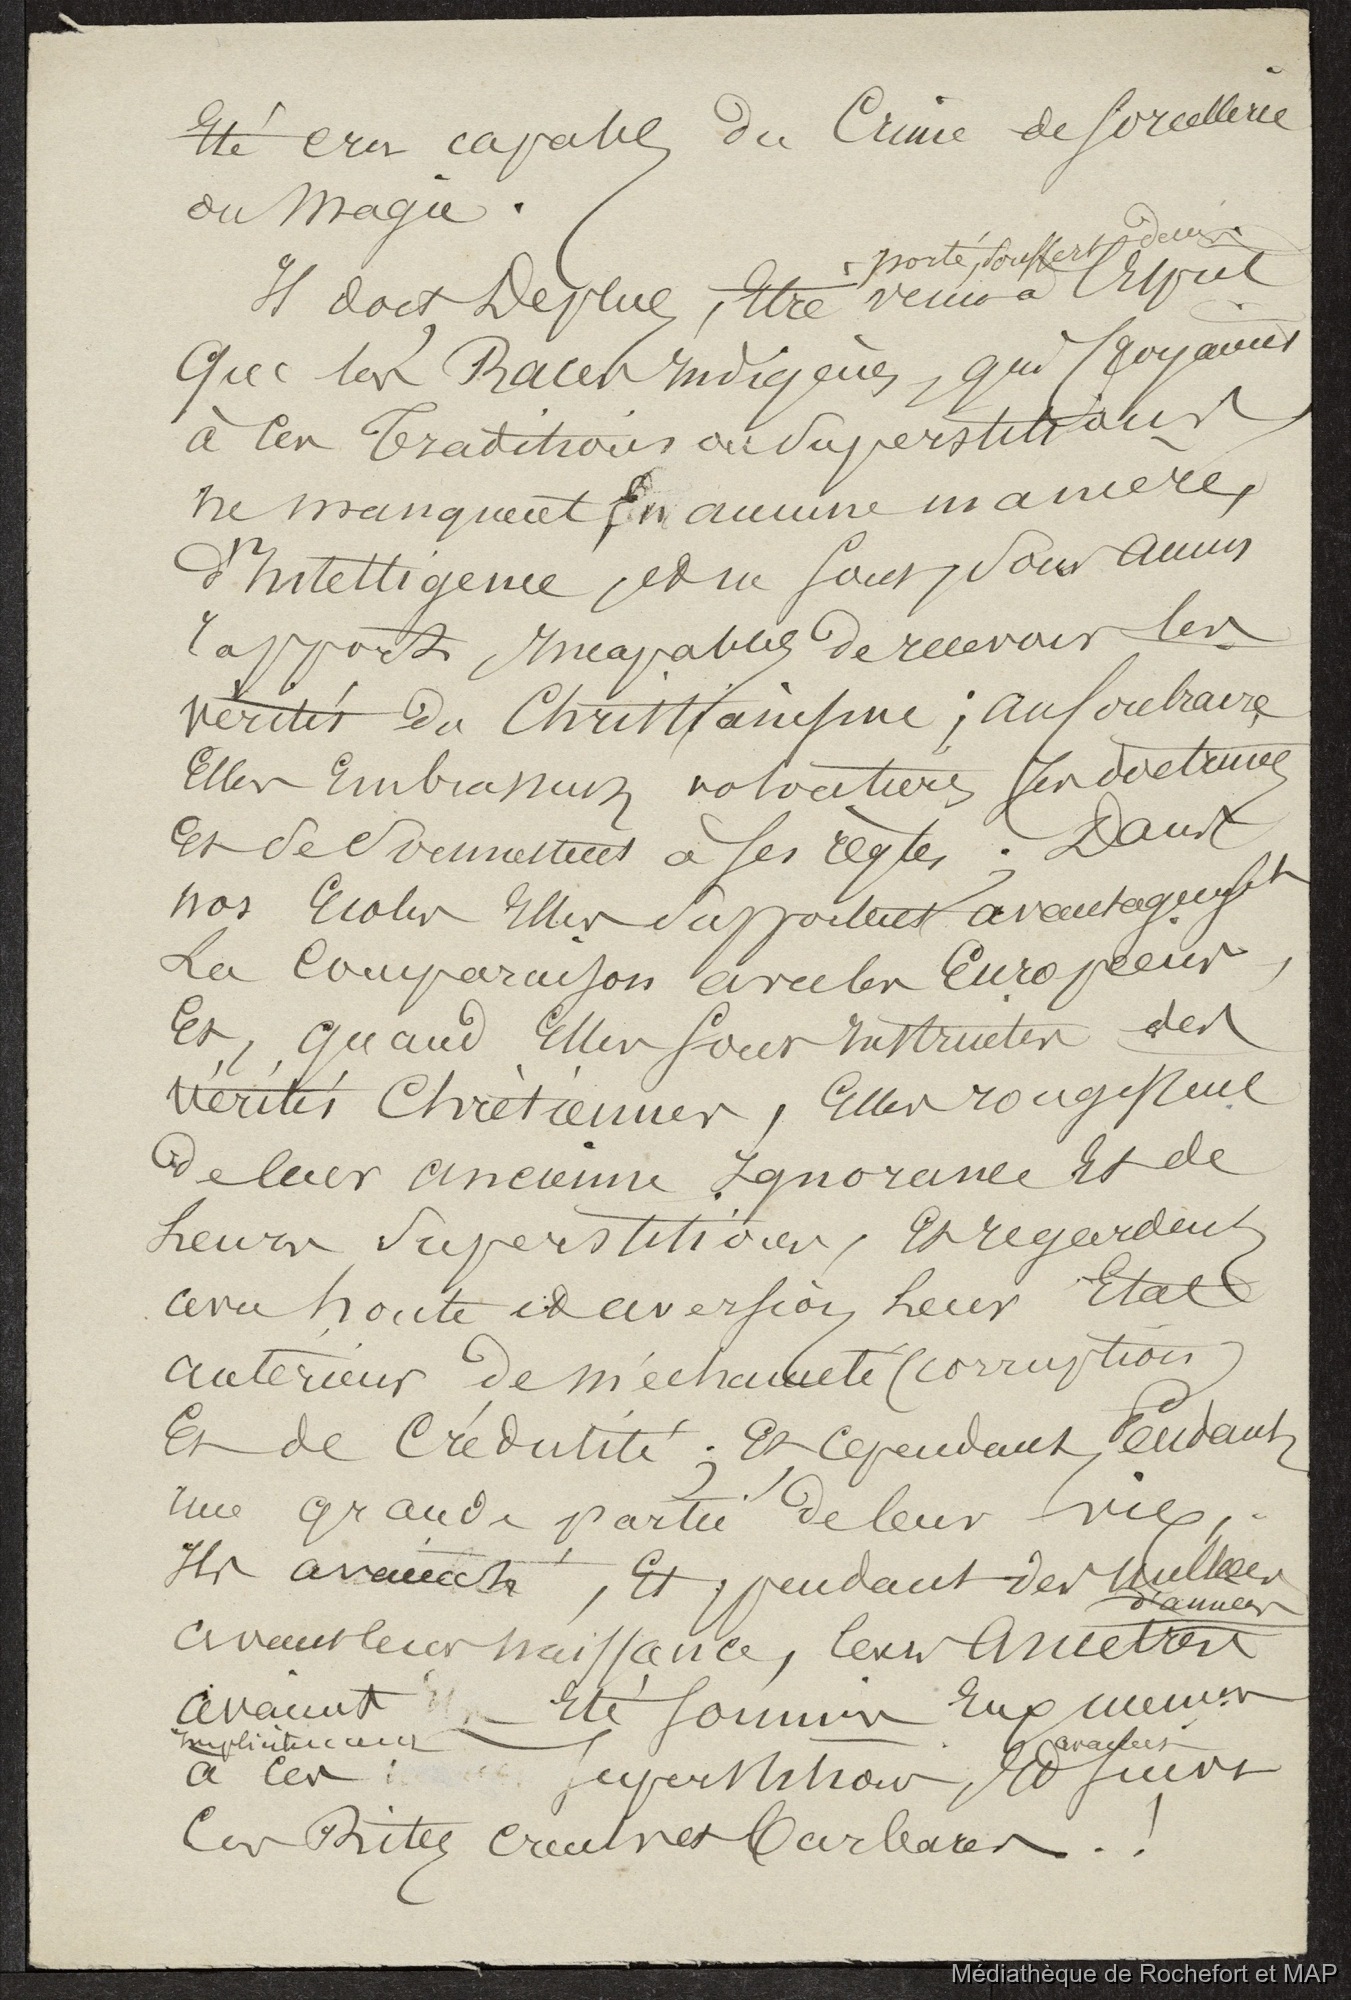 Eté crus capables du Crime de Sorcellerie
ou Magie.
porté, souffert
Il doit Deplus, Etre venu à l'Esprit
Que les Races Indigènes, qui croyaient
à Ces Traditions ou Superstitions
ne manquent En aucune manière,
d'Intelligence, et ne sont, sous aucuns
rapports, Incapables de recevoir les
vérités du Christianisme; au Contraire
Elles Embrassent volontiers ses doctrines
Et se soumettent à ses règles. Dans
nos Ecoles Elles supportent avantageusst
La Comparaison avec les Européens,
Et, Quand Elles sont Instruites des
Vérités Chrètiennes, Elles rougissent
De leur ancienne Ignorance Et de
Leurs Superstitions, Et regardent
avec honte et aversion Leur Etat
antérieur de méchanceté (corruption)
Et de Crédulité; Et cependant, Pendant
une grande partie de leur vie,
Ils avaient, Et, pendant des milliers
d'années
avant leur naissance, leurs Ancetres
avaient Eté soumis Eux memes
Implicitement avaient
à Ces Superstitions, Et suivi
Ces Rites cruels et barbares..!
Médiathèque de Rochefort et MAP